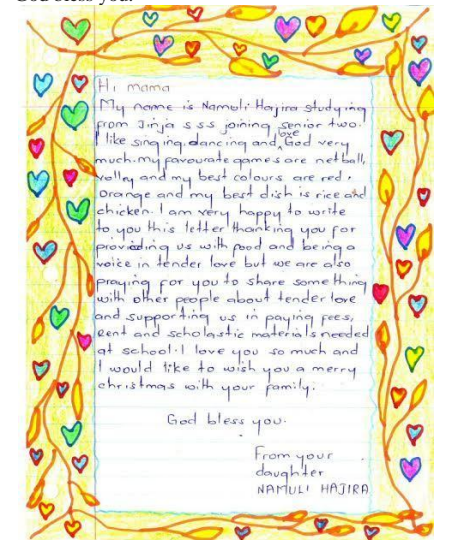 God bless you.
Hi mama
My name is Namuli Hajira studying
from Jinja s s s joining senior two.
I like singing, dancing and love God very
much. my favourate games are netball,
volley and my best colours are red,
orange and my best dish is rice and
chicken. I am very happy to write
to you this letter thanking you for
providing us with food and being a
voice in tender love but we are also
praying for you to share something
with other people about tender love
and supporting us in paying fees,
Rent and scholastic materials needed
at school. I love you so much and
I would like to wish you a merry
christmas with your family.
God bless you.
From your
daughter
NAMULI HAJIRA